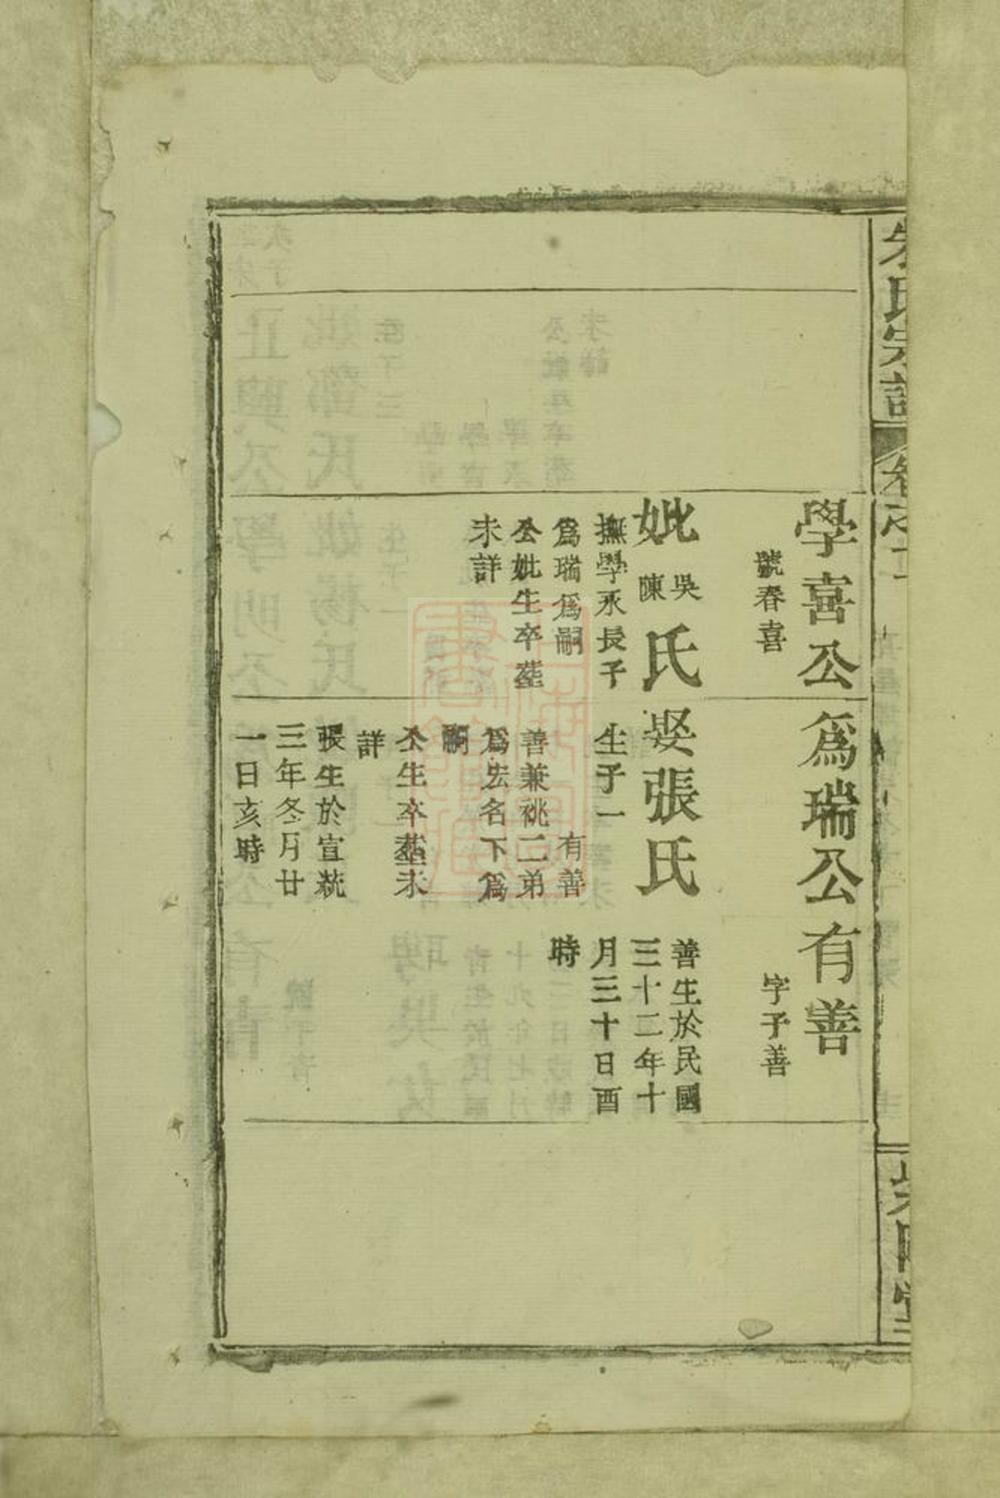 朱氏宗譜
卷之
學喜公
號春喜
妣吳陳氏
撫學永長子
爲瑞爲嗣
公妣生卒塟
未詳
爲瑞公
娶張氏
生子一
有善
善兼祧二弟
爲宏名下爲
嗣
公生卒塟未
詳
張生於宣統
三年冬月廿
一日亥時
有善
字子善
善生於民國
三十二年十
月三十日酉
時